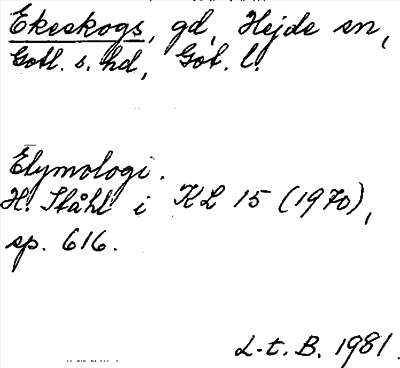 Ekeskogs, gd, Hejde sn,
Gotl. s. hd, Got. l.
Etymologi.
H. Ståhl i KL 15 (1970),
sp. 616.
L-t. B. 1981